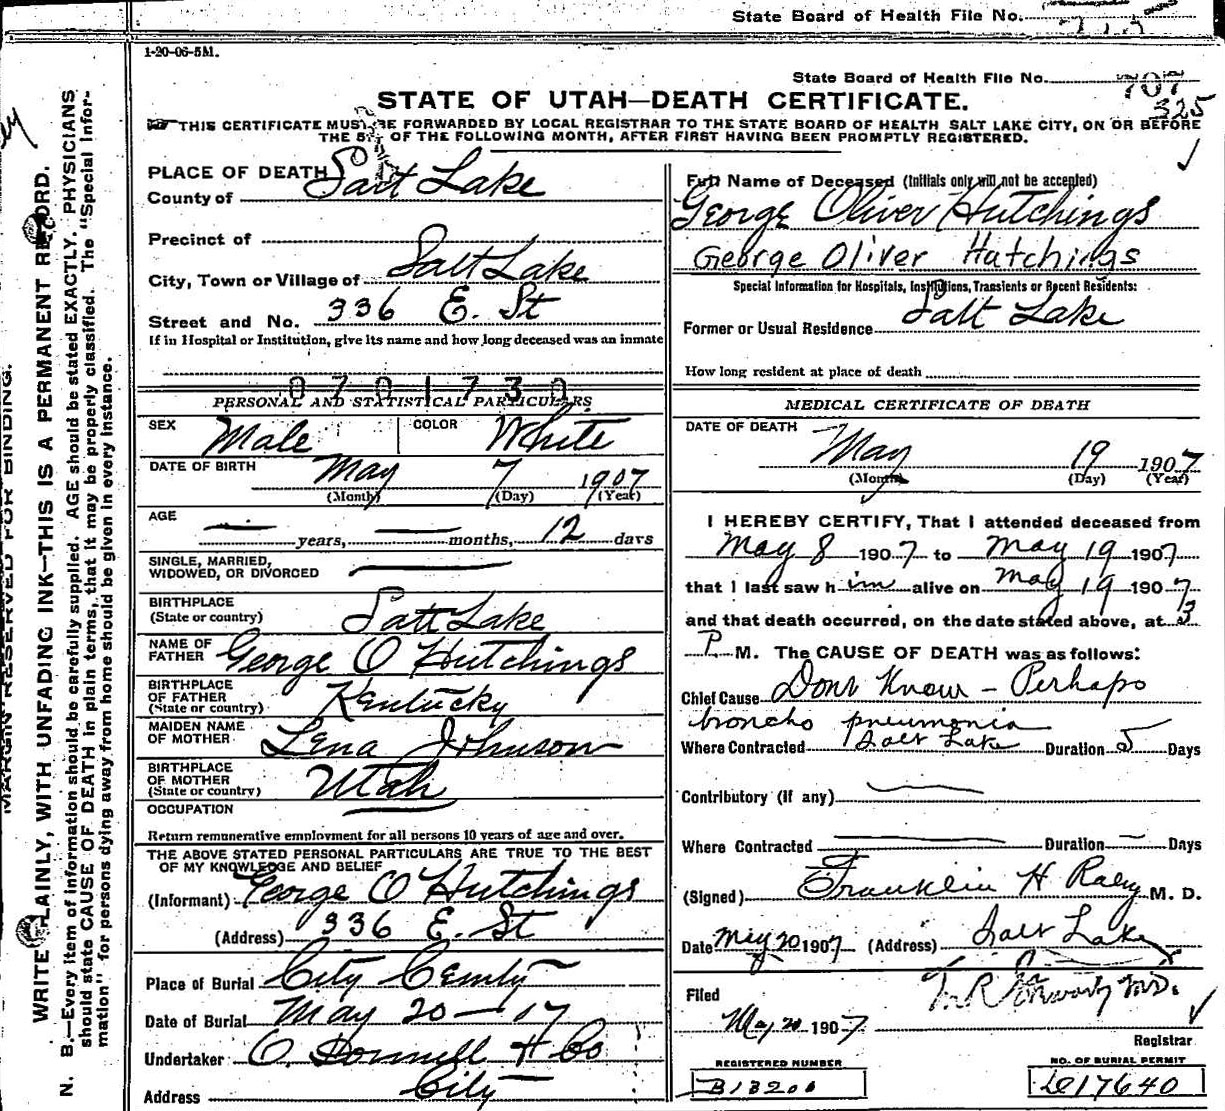 State Board of Health File No.
1-20-06-5M.
State Board of Health File No. 707
325
STATE OF UTAH—DEATH CERTIFICATE.
THIS CERTIFICATE MUST BE FORWARDED BY LOCAL REGISTRAR TO THE STATE BOARD OF HEALTH SALT LAKE CITY, ON OR BEFORE
THE 5th OF THE FOLLOWING MONTH, AFTER FIRST HAVING BEEN PROMPTLY REGISTERED.
MARGIN RESERVED FOR BINDING.
WRITE PLAINLY, WITH UNFADING INK—THIS IS A PERMANENT RECORD.
N. B.—Every item of information should be carefully supplied. AGE should be stated EXACTLY. PHYSICIANS
should state CAUSE OF DEATH in plain terms, that it may be properly classified. The "Special Infor-
mation" for persons dying away from home should be given in every instance.
PLACE OF DEATH
County of Salt Lake
Precinct of
City, Town or Village of Salt Lake
Street and No. 336 E. St
If in Hospital or Institution, give its name and how long deceased was an inmate
0701730
PERSONAL AND STATISTICAL PARTICULARS
SEX Male COLOR White
DATE OF BIRTH May 7 1907
(Month) (Day) (Year)
AGE — years, — months, 12 days
SINGLE, MARRIED,
WIDOWED, OR DIVORCED —
BIRTHPLACE
(State or country) Salt Lake
NAME OF
FATHER George O Hutchings
BIRTHPLACE
OF FATHER
(State or country) Kentucky
MAIDEN NAME
OF MOTHER Lena Johnson
BIRTHPLACE
OF MOTHER
(State or country) Utah
OCCUPATION —
Return remunerative employment for all persons 10 years of age and over.
THE ABOVE STATED PERSONAL PARTICULARS ARE TRUE TO THE BEST
OF MY KNOWLEDGE AND BELIEF
(Informant) George O Hutchings
(Address) 336 E. St
Place of Burial City Cemty
Date of Burial May 20 — 07
Undertaker O. Donnell & Co
Address City
Full Name of Deceased (Initials only will not be accepted)
George Oliver Hutchings
George Oliver Hutchings
Special Information for Hospitals, Institutions, Transients or Recent Residents:
Former or Usual Residence Salt Lake
How long resident at place of death
MEDICAL CERTIFICATE OF DEATH
DATE OF DEATH
May 19 1907
(Month) (Day) (Year)
I HEREBY CERTIFY, That I attended deceased from
May 8 1907 to May 19 1907
that I last saw him alive on May 19 1907
and that death occurred, on the date stated above, at 3
P. M. The CAUSE OF DEATH was as follows:
Chief Cause Dont Know – Perhaps
broncho pneumonia
Where Contracted Salt Lake Duration 5 Days
Contributory (If any) —
Where Contracted — Duration — Days
(Signed) Franklin H Raley M. D.
Date May 20 1907 (Address) Salt Lake
Filed
May 20 1907
M.D.
Registrar
REGISTERED NUMBER
B13206
NO. OF BURIAL PERMIT
17640